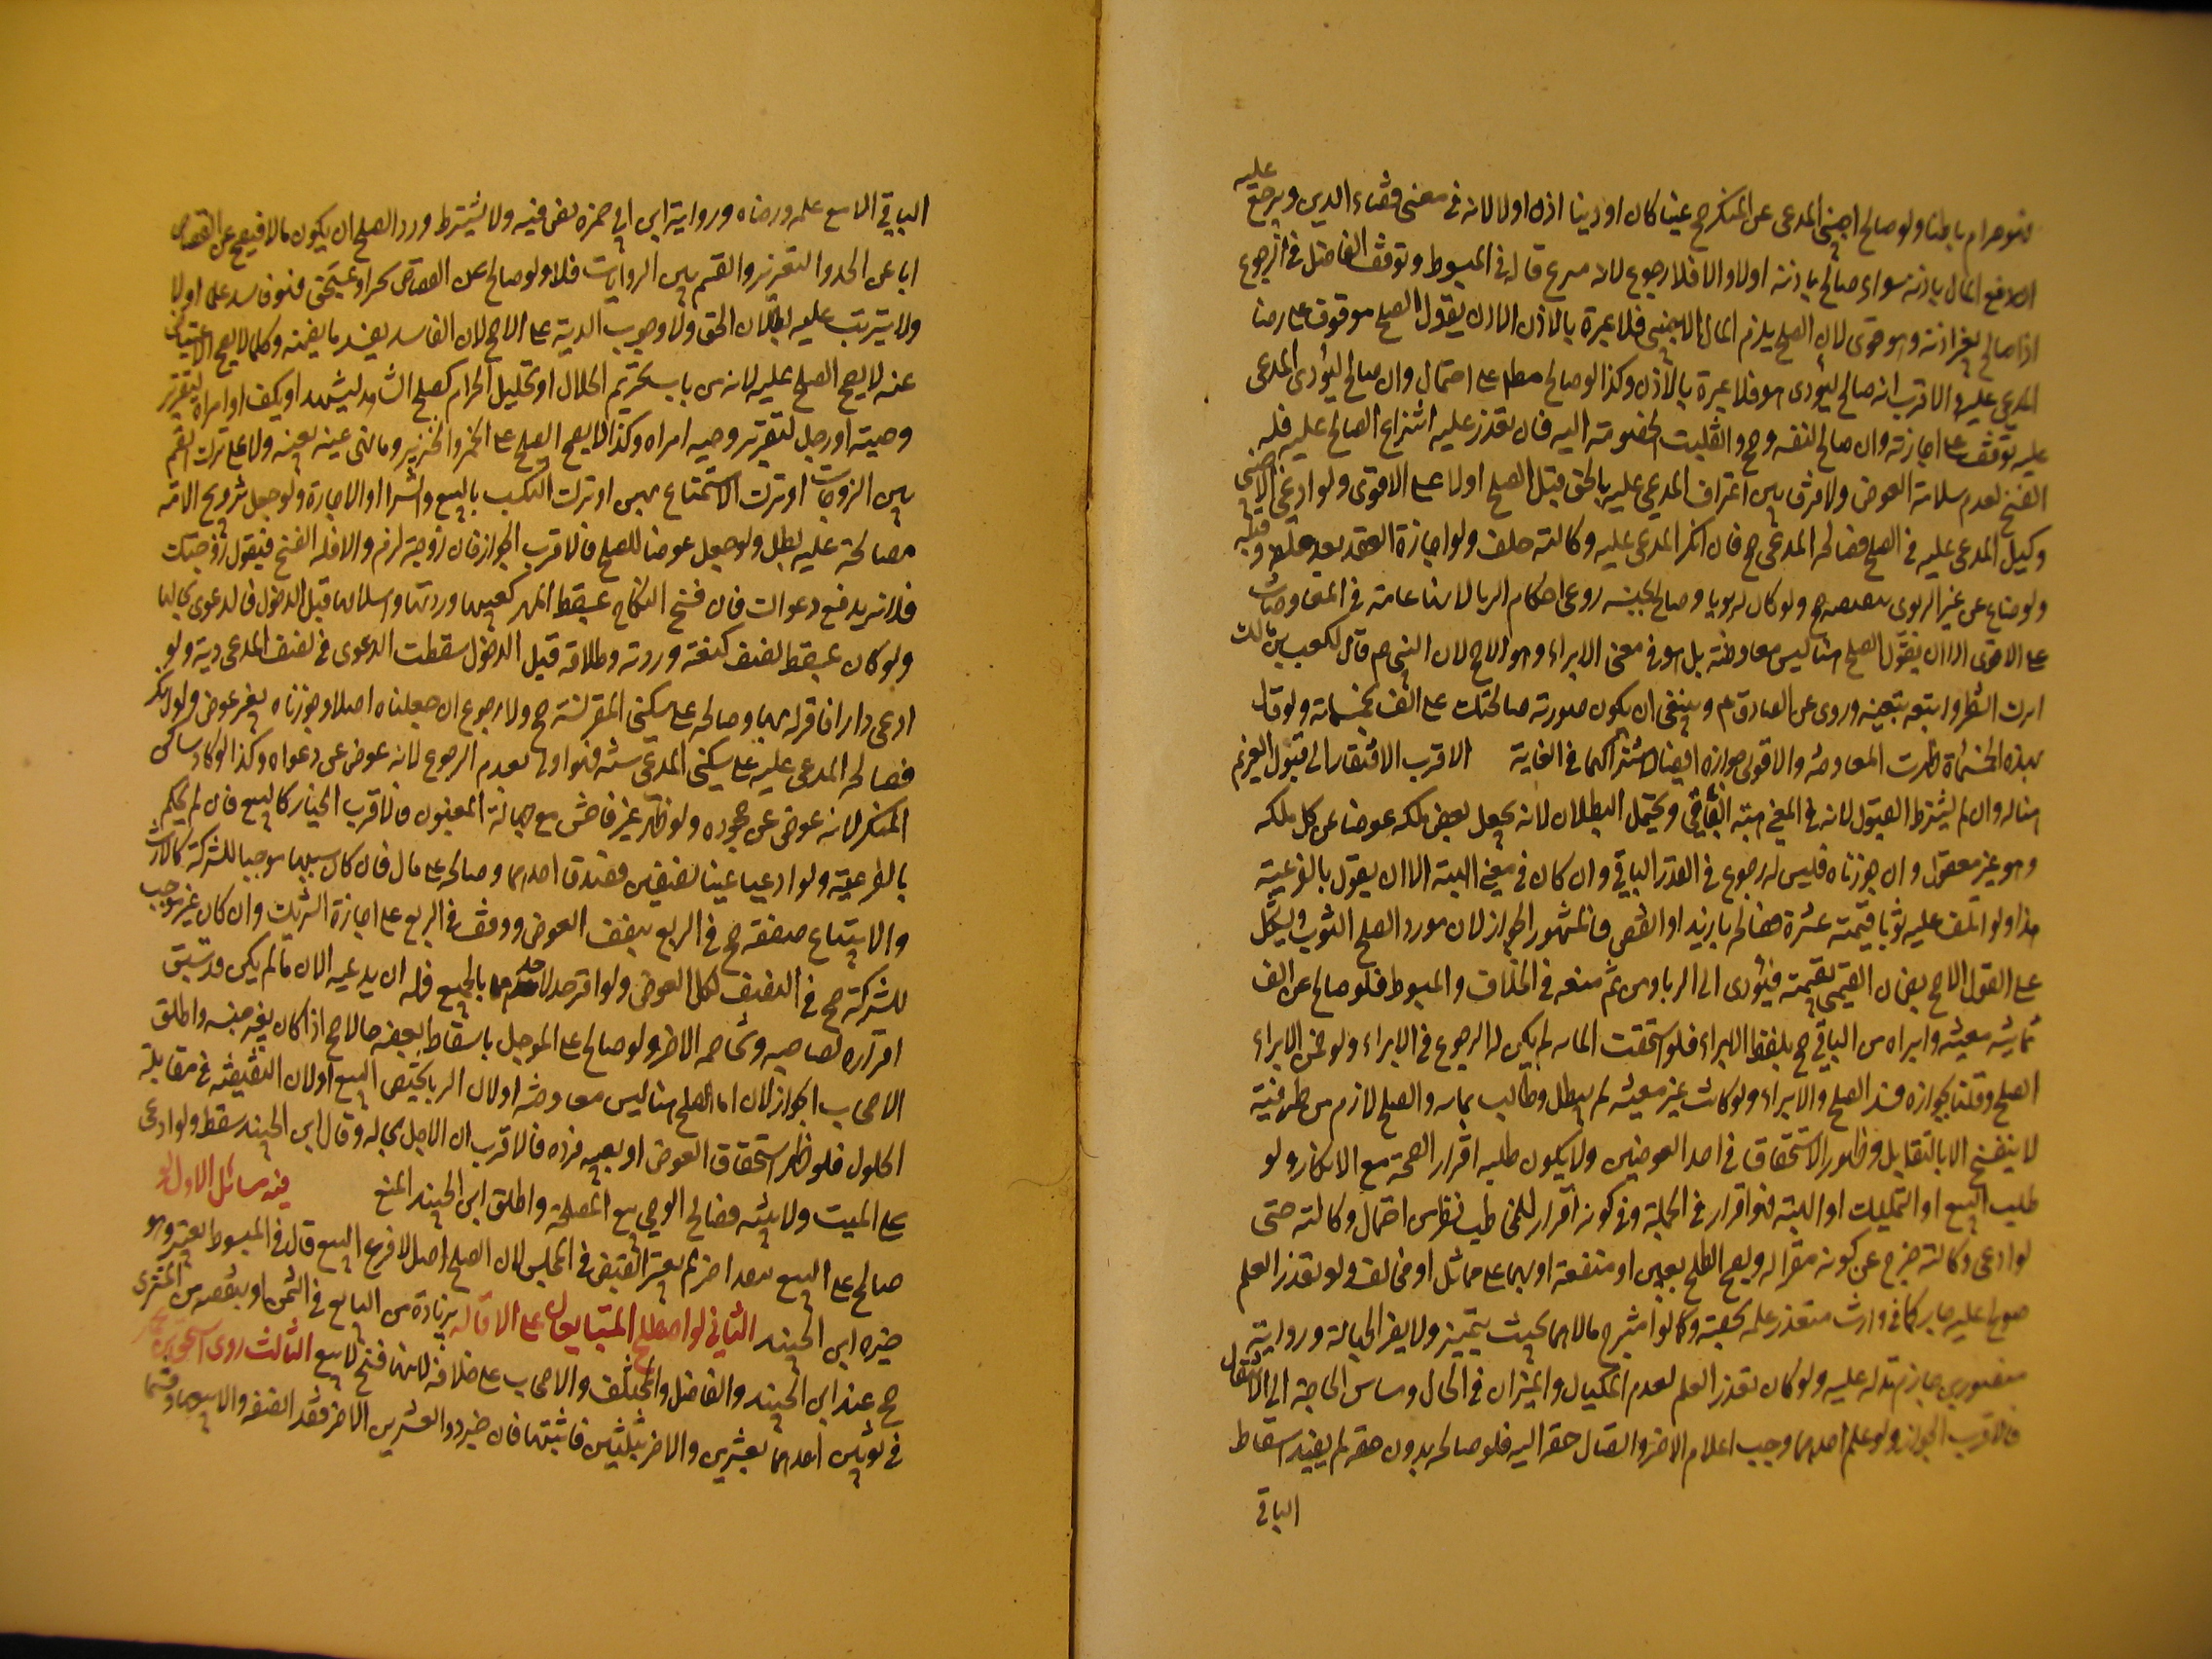 فهو حرام باطنا ولو صالح اجنبي المدعى عن المنكر صح عينا كان او دينا اذن او لا لانه في معنى قضاء الدين ويرجع عليه
ان دفع المال باذنه سواء صالح باذنه اولا والا فلا رجوع لانه متبرع قاله في المبسوط وتوقف الفاضل في الرجوع
اذا صالح بغير اذنه وهو قوي لان الصلح يلزم المال الاجنبي فلا عبرة بالاذن الا ان يقول الصلح موقوف على رضا
المدعى عليه والاقرب انه صالح ليؤدي هو فلا عبرة بالاذن وكذا لو صالح مطلقا على احتمال وان صالح ليؤدي المدعى
عليه توقف على اجازته وان صالح لنفسه صح وانقلبت الخصومة اليه فان تعذر عليه انتزاع المصالح عليه فله
الفسخ لعدم سلامة العوض ولا فرق بين اعتراف المدعى عليه بالحق قبل الصلح اولا على الاقوى ولو ادعى الاجنبي
وكيل المدعى عليه في الصلح فصالحه المدعي صح فان انكر المدعى عليه وكالته حلف وله اجازة العقد بعد حلفه وقبله
ولو صالح عن غير الربوي بنقيصة صح ولو كان ربويا وصالح بجنسه روعي احكام الربا لانها عامة في المعاوضات
على الاقوى الا ان يقول الصلح هنا ليس معاوضة بل هو في معنى الابراء وهو الاصح لان النبي صلى قال لكعب بن مالك
اترك الشطر واتبعه ببقيته وروي عن الصادق عم وينبغي ان يكون صورته صالحتك على الف بخمسمائة ولو قال
بهذه الخمسمائة ظهرت المعاوضة والاقوى جوازه ايضا لاشتراكهما في الغاية الاقرب الافتقار الى قبول الغريم
هنا له وان لم يشترط القبول لانه في المعنى هبة الباقي ويحتمل البطلان لانه يجعل بعض ملكه عوضا عن كل ملكه
وهو غير معقول وان جوزناه فليس له رجوع في القدر الباقي وان كان في معنى الهبة الا ان يقول بالفرعية
هذا ولو اتلف عليه ثوبا قيمته عشرة فصالحه بازيد او انقص فالمشهور الجواز لان مورد الصلح الثوب ويشكل
على القول الاصح بضمان القيمي بقيمته فيؤدي الى الربا ومن ثم منعه في الخلاف والمبسوط فلو صالح عن الف
بثمانمائة معينة وابراه من الباقي صح بلفظ الابراء فلو استحقت المائة لم يكن له الرجوع في الابراء ولو ضمن الابراء
الصلح وقلنا بجوازه فسد الصلح والابراء ولو كانت غير معينة لم يبطل وطالب بمائة والصلح لازم من طرفيه
لا ينفسخ الا بالتقايل وظهور الاستحقاق في احد العوضين ولا يكون طلبه اقرار الصحة مع الانكار ولو
طلب البيع او التمليك او الهبة فهو اقرار في الجملة وفي كونه اقرار للمخاطب نظر من احتمال وكالته حتى
لو ادعى وكالته خرج عن كونه مقرا له ويصح الصلح بعين او منفعة او بهما على مماثل او مخالف ولو تعذر العلم
صولح عليه جاز كما في وارث متعذر علمه بحصته وكما لو امتزج مالاهما بحيث يتميز ولا يضر الجهالة ورواية
منصور بن حازم تدل عليه ولو كان تعذر العلم لعدم المكيال والميزان في الحال ومساس الحاجة الى الانتقال
فالاقرب الجواز ولو علم احدهما وجب اعلام الاخر وايصال حقه اليه فلو صالحه بدون حقه لم يفد اسقاط
الباقي
الباقي الا مع علمه ورضاه ورواية ابن ابي حمزة نص فيه ولا يشترط ورد الصلح ان يكون مالا فيصح عن القصاص
اما عن الحد والتعزير والقسم بين الزوجات فلا ولو صالح عن القصاص بحر او مستحق فهو فاسد علما اولا
ولا يترتب عليه بطلان الحق ولا وجوب الدية على الاصح لان الفاسد يفسد ما يضمنه وكلما لا يصح الاعتياض
عنه لا يصح الصلح عليه لانه من باب تحريم الحلال او تحليل الحرام كصلح الشاهد ليشهد او يكف او امراه لتقر بزوجية
او رجل لتقر بزوجيه امراه وكذا لا يصح الصلح على الخمر والخنزير وما نهي عينه بعينه ولا على ترك القسم
بين الزوجات او ترك الاستمتاع بهن او ترك التكسب بالبيع والشرا او الاجارة ولو جعل تزويج الامة
مصالحة عليه بطل ولو جعل عوضا للصلح فالاقرب الجواز فان زوجه لزم والا فله الفسخ فيقول زوجتك
فلانة بدفع دعواك فان فسخ النكاح بمسقط المهر كعيبها وردتها واسلامها قبل الدخول فالدعوى بحالها
ولو كان بمسقط لنصف كفسخه وردته وطلاقه قبل الدخول سقطت الدعوى في نصف المدعى دية ولو
ادعى دارا فاقر له بها وصالحه على سكنى المقر سنة صح ولا رجوع ان جعلناه اصلا وجوزناه بغير عوض ولو انكر
فصالحه المدعى عليه على سكنى المدعي سنة فهو اولى بعدم الرجوع لانه عوض عن دعواه وكذا لو كان ساكن
المنكر لانه عوض عن جحوده ولو ظهر غبن فاحش مع جهالة المغبون فالاقرب الخيار كالبيع فان لم يحكم
بالفرعية ولو ادعيا عينا نصفين فصدق احدهما وصالحه على مال فان كان سببهما موجبا للشركة كالارث
والابتياع صفقة صح في الربع بنصف العوض ووقف في الربع على اجازة الشريك وان كان غير موجب
للشركة صح في النصف بكل العوض ولو اقر احدهما بالجميع فله ان يدعيه الان ما لم يكن قد سبق
اقراره لصاحبه وتخاصمه الاخر ولو صالح على المؤجل باسقاط بعضه حالا صح اذا كان بغير جنسه واطلق
الاصحاب الجواز لان اما الصلح هنا ليس معاوضة او لان الربا يختص البيع او لان النقيصة في مقابلة
الحلول فلو ظهر استحقاق العوض او بعيبه فرده فالاقرب ان الاجل بحاله وقال ابن الجنيد سقط ولو ادعى
على الميت ولا بينه فصالح الوصي بيع المصلحة واطلق ابن الجنيد المنع فيه مسائل الاول لو
صالح على البيع بعد اخر لم يعتبر القبض في المجلس لان الصلح اصل لا فرع البيع قال في المبسوط يعتبر وهو
خيره ابن الجنيد الثاني لو اصطلح المتبايعان على الاقالة بزيادة من البايع في الثمن او بنقصه من المشتري
صح عند ابن الجنيد والفاضل والمختلف والاصحاب على خلافه لانها فسخ لا بيع الثالث روى اسحق بن عمار
في ثوبين احدهما بعشرين والاخر بثلثين فاشتبها فان خير ذو العشرين الاخر فقد انصفه والا بيعا وقسما